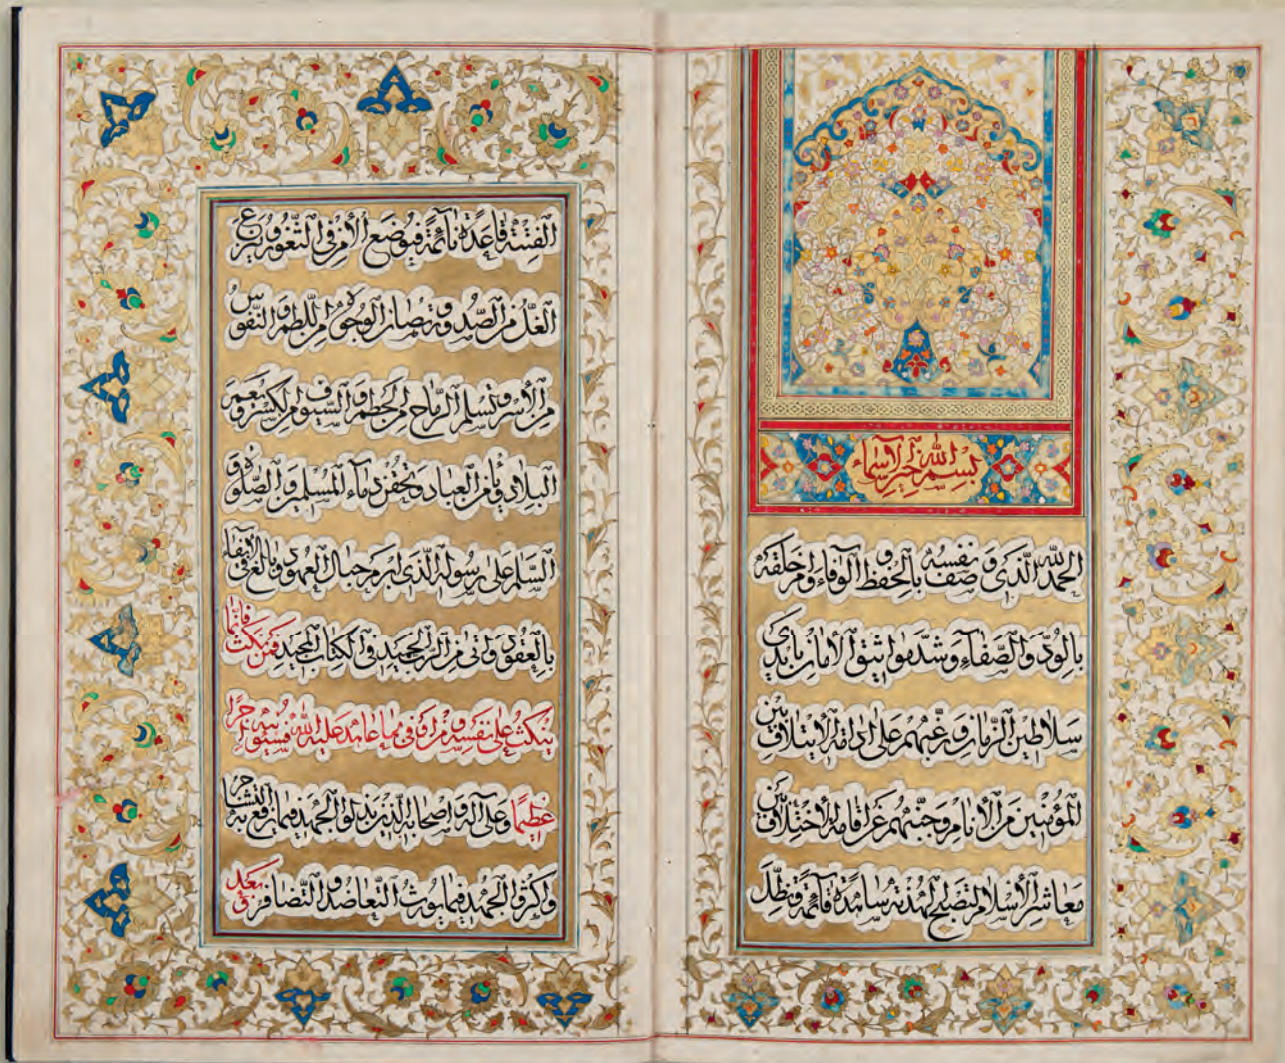 بسم الله خير الأسماء
الحمد لله الذی وصف نفسه بالحفظ و الوفاء و امر خلقه
بالود و الصفآء و شد مواثیق الامان بایدی
سلاطین الزمان و رغبهم علی ادامة الایتلاف بین
المؤمنین من الأنام و جنبهم عن اقامة الاختلاف بین
معاشر الأسلام لتصبح الهدنة قآئمة و تظل
الفتنة قاعدة نآئمة فیوضع الأمن فی الثغور و ینزع
الغل من الصدور و تصان الوجوه من اللطم و النفوس
من الأسر و تسلم الرماح من الحطم و السیوف من الکسر و تعمر
البلاد و یأمن العباد و تحقن دمآء المسلمین و الصلوة و
السلم علی رسوله الذی ابرم حبال العهود و بالغ فی الایفآء
بالعقود و اتی من الرب الحمید فی الکتاب المجید فمن نکث فانما
ینکث علی نفسه و من اوفی بما عاهد علیه الله فسیؤتیه اجرا
عظیما و علی آله و اصحابه الذین بذلوا الجهد فیما رفع به التشاجر
و اکثروا الجهد فیما یورث التعاضد و التضافر و بعد